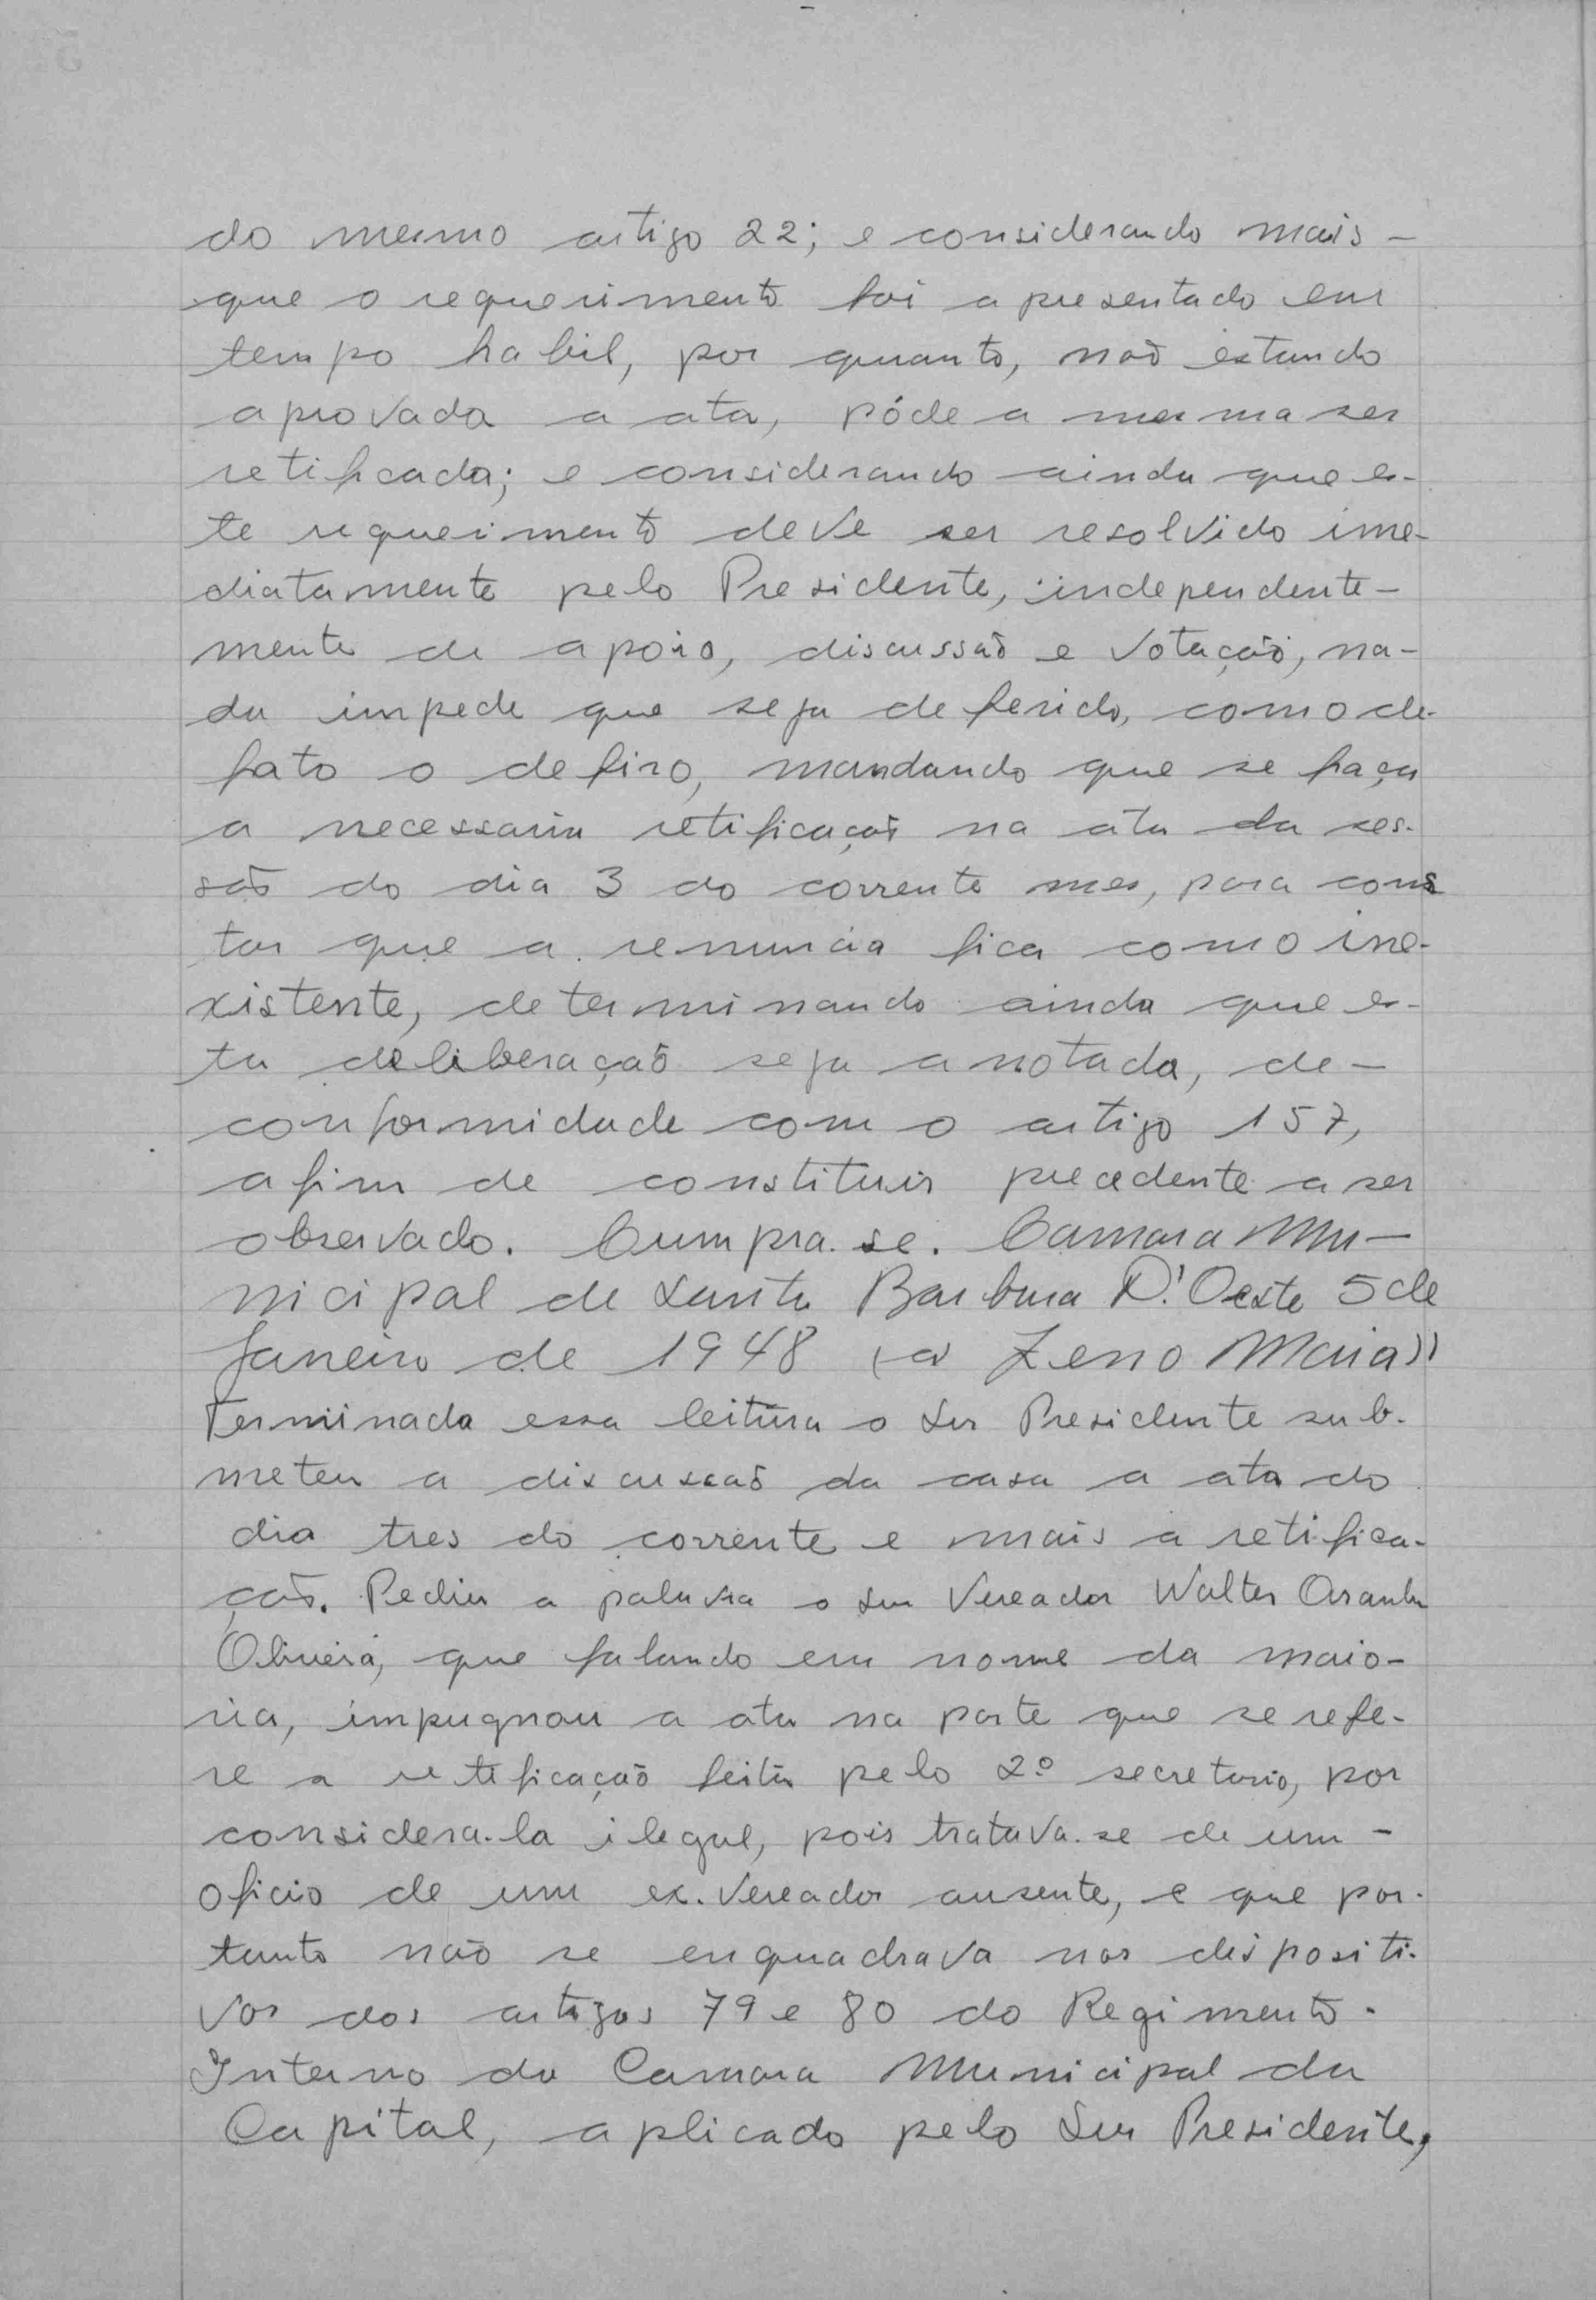 do mesmo artigo 22; e considerando mais -
que o requerimento foi apresentado em
tempo habil, por quanto, não estando
aprovada a ata, póde a mesma ser
retificada; e considerando ainda que es-
te requerimento deve ser resolvido ime-
diatamente pelo Presidente, independente-
mente de apoio, discussão e votação, na-
da impede que seja deferido, como de-
fato o defiro, mandando que se faça
a necessaria retificação na ata da ses-
são do dia 3 do corrente mes, para cons
tar que a renuncia fica como ine-
xistente, determinando ainda que es-
ta deliberação seja anotada, de -
conformidade com o artigo 157,
afim de constituir precedente a ser
observado. Cumpra-se. Camara Mu-
nicipal de Santa Barbara D'Oeste 5 de
Janeiro de 1948 (a) Zeno Maia))
Terminada essa leitura o Snr Presidente sub-
meteu a discussão da casa a ata do
dia tres do corrente e mais a retifica-
ção. Pediu a palavra o Snr Vereador Walter Aranha
Oliveira, que falando em nome da maio-
ria, impugnou a ata na parte que se refe-
re a retificação feita pelo 2º secretario, por
considera-la ilegal, pois tratava-se de um -
oficio de um ex-Vereador ausente, e que por-
tanto não se enquadrava nos dispositi-
vos dos artigos 79 e 80 do Regimento -
Interno da Camara Municipal da
Capital, aplicado pelo Snr Presidente,